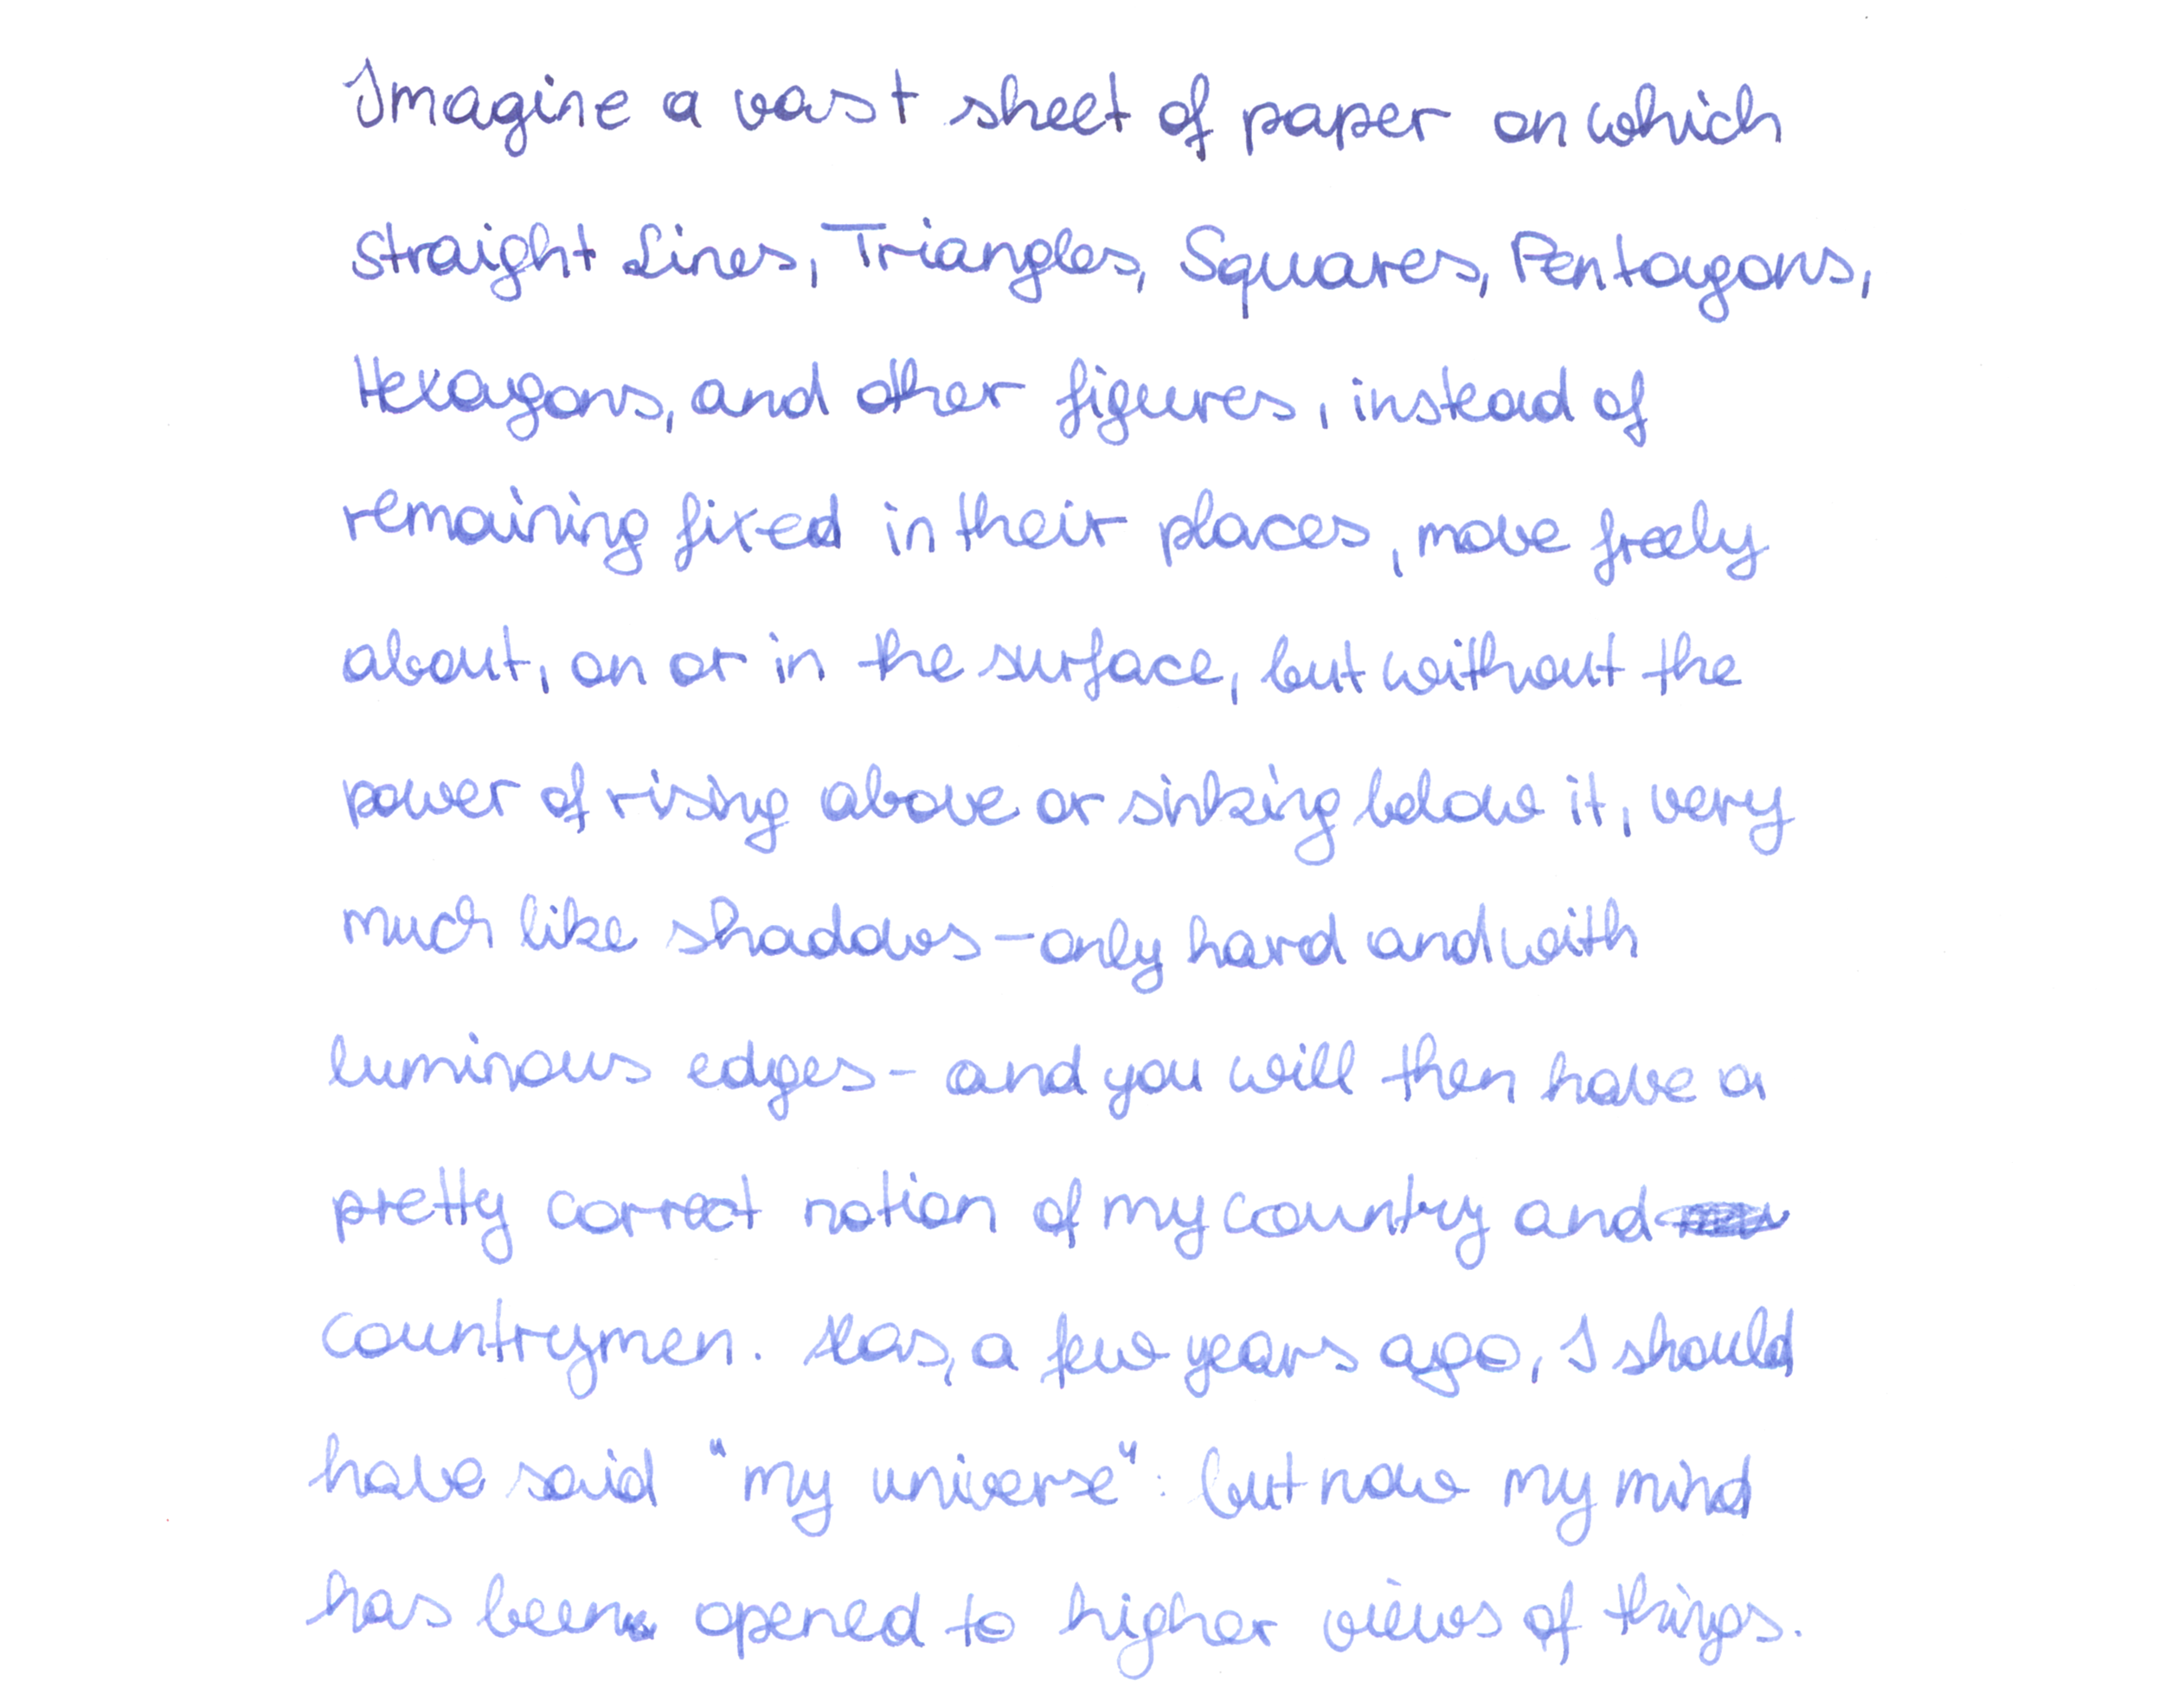 Imagine a vast sheet of paper on which
straight Lines, Triangles, Squares, Pentagons,
Hexagons, and other figures, instead of
remaining fixed in their places, move freely
about, on or in the surface, but without the
power of rising above or sinking below it, very
much like shadows - only hard and with
luminous edges - and you will then have a
pretty correct notion of my country and
countrymen. Alas, a few years ago, I should
have said "my universe": but now my mind
has been opened to higher views of things.